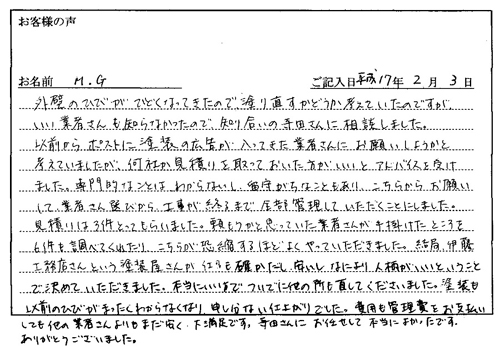 お客様の声
お名前 M.G ご記入日 平成17年2月3日
外壁のひびがひどくなってきたので塗り直すかどうか考えていたのですが
いい業者さんも知らなかったので、知り合いの寺田さんに相談しました。
以前からポストに塗装の広告が入ってきた業者さんにお願いしようかと
考えていましたが、何社か見積りを取っておいた方がいいとアドバイスを受け
ました。専門的なことはわからないし、留守がちなこともあり、こちらからお願い
して、業者さん選びから工事が終るまで全部管理していただくことにしました。
見積りは3件とってもらいました。頼もうかと思っていた業者さんが手掛けたところを
6件も調べてくれたり、こちらが恐縮するほどよくやっていただきました。結局、伊藤
工務店さんという塗装屋さんが仕事も確かだし、安いし、なにより人柄がいいということ
で決めていただきました。本当にいい方でついでに他の所も直してくださいました。塗装も
以前のひびがまったくわからなくなり、申し分ない仕上がりでした。費用も管理費をお支払い
しても他の業者さんよりもまだ安く、大満足です。寺田さんにお任せして本当によかったです。
ありがとうございました。